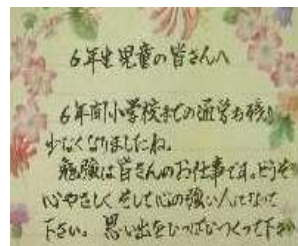 6年生児童の皆さんへ
6年間小学校までの通学も残り
少なくなりましたね。
勉強は皆さんのお仕事です。どうぞ
心やさしく そして心の強い人になって
下さい。思い出をいっぱいつくって下さ